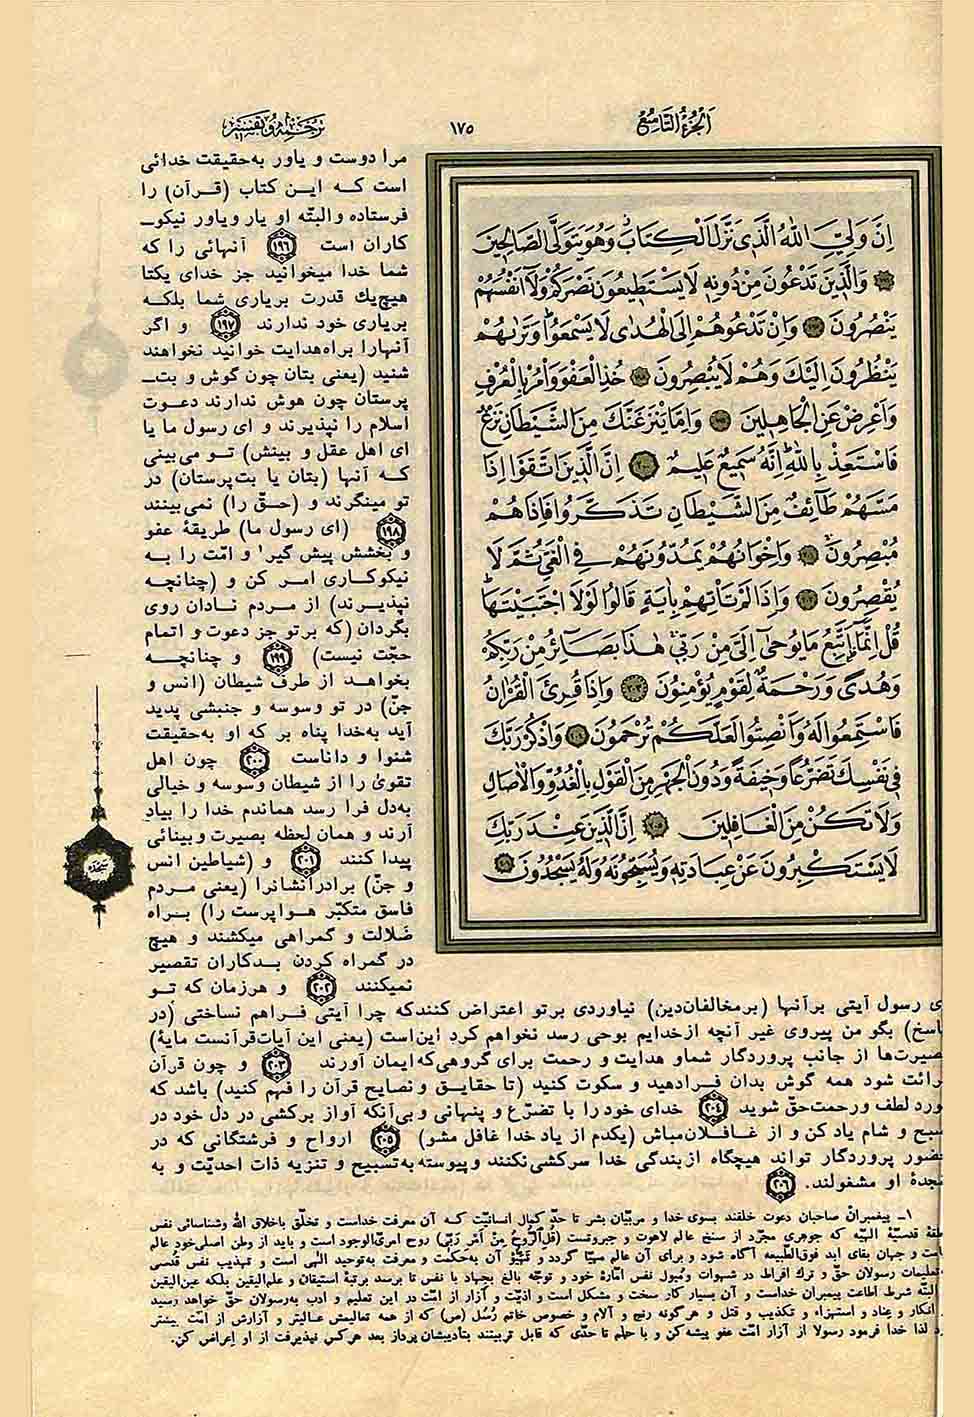 اَلْجُزْءُ التَّاسِعُ
۱۷۵
ترجمه و تفسیر
اِنَّ وَلِيِّيَ اللّٰهُ الَّذِي نَزَّلَ الْكِتَابَ وَهُوَ يَتَوَلَّى الصَّالِحِينَ
وَالَّذِينَ تَدْعُونَ مِنْ دُونِهِ لَا يَسْتَطِيعُونَ نَصْرَكُمْ وَلَا اَنْفُسَهُمْ
يَنْصُرُونَ ۱۹۷ وَاِنْ تَدْعُوهُمْ اِلَى الْهُدٰى لَا يَسْمَعُوا وَتَرٰيهُمْ
يَنْظُرُونَ اِلَيْكَ وَهُمْ لَا يُبْصِرُونَ ۱۹۸ خُذِ الْعَفْوَ وَأْمُرْ بِالْعُرْفِ
وَاَعْرِضْ عَنِ الْجَاهِلِينَ ۱۹۹ وَاِمَّا يَنْزَغَنَّكَ مِنَ الشَّيْطَانِ نَزْغٌ
فَاسْتَعِذْ بِاللّٰهِ اِنَّهُ سَمِيعٌ عَلِيمٌ ۲۰۰ اِنَّ الَّذِينَ اتَّقَوْا اِذَا
مَسَّهُمْ طَآئِفٌ مِنَ الشَّيْطَانِ تَذَكَّرُوا فَاِذَا هُمْ
مُبْصِرُونَ ۲۰۱ وَاِخْوَانُهُمْ يَمُدُّونَهُمْ فِي الْغَيِّ ثُمَّ لَا
يُقْصِرُونَ ۲۰۲ وَاِذَا لَمْ تَأْتِهِمْ بِاٰيَةٍ قَالُوا لَوْلَا اجْتَبَيْتَهَا
قُلْ اِنَّمَا اَتَّبِعُ مَا يُوحٰى اِلَيَّ مِنْ رَبِّي هٰذَا بَصَآئِرُ مِنْ رَبِّكُمْ
وَهُدًى وَرَحْمَةٌ لِقَوْمٍ يُؤْمِنُونَ ۲۰۳ وَاِذَا قُرِئَ الْقُرْاٰنُ
فَاسْتَمِعُوا لَهُ وَاَنْصِتُوا لَعَلَّكُمْ تُرْحَمُونَ ۲۰۴ وَاذْكُرْ رَبَّكَ
فِي نَفْسِكَ تَضَرُّعًا وَخِيفَةً وَدُونَ الْجَهْرِ مِنَ الْقَوْلِ بِالْغُدُوِّ وَالْاٰصَالِ
وَلَا تَكُنْ مِنَ الْغَافِلِينَ ۲۰۵ اِنَّ الَّذِينَ عِنْدَ رَبِّكَ
لَا يَسْتَكْبِرُونَ عَنْ عِبَادَتِهِ وَيُسَبِّحُونَهُ وَلَهُ يَسْجُدُونَ ۲۰۶
مرا دوست و یاور به‌حقیقت خدائی
است که این کتاب (قرآن) را
فرستاده والبتّه او یار ویاور نیکو‌ـ
کاران است ۱۹۶ آنهائی را که
شما خدا میخوانید جز خدای یکتا
هیچ‌یك قدرت بریاری شما بلکه
بریاری خود ندارند ۱۹۷ و اگر
آنهارا براه‌هدایت خوانید نخواهند
شنید (یعنی بتان چون گوش و بت‌ـ
پرستان چون هوش ندارند دعوت
اسلام را نپذیرند و ای رسول ما یا
ای اهل عقل و بینش) تو می‌بینی
که آنها (بتان یا بت‌پرستان) در
تو مینگرند و (حقّ را) نمی‌بینند
۱۹۸ (ای رسول ما) طریقهٔ عفو
و بخشش پیش گیر۱ و امّت را به
نیکوکاری امر کن و (چنانچه
نپذیرند) از مردم نادان روی
بگردان (که برتو جز دعوت و اتمام
حجّت نیست) ۱۹۹ و چنانچه
بخواهد از طرف شیطان (انس و
جنّ) در تو وسوسه و جنبشی پدید
آید به‌خدا پناه بر که او به‌حقیقت
شنوا و داناست ۲۰۰ چون اهل
تقوی را از شیطان وسوسه و خیالی
به‌دل فرا رسد هماندم خدا را بیاد
آرند و همان لحظه بصیرت و بینائی
پیدا کنند ۲۰۱ و (شیاطین انس
و جنّ) برادرانشانرا (یعنی مردم
فاسق متکبّر هواپرست را) براه
ضَلالت و گمراهی میکشند و هیچ
در گمراه کردن بدکاران تقصیر
نمیکنند ۲۰۲ و هرزمان که تو
ی رسول آیتی برآنها (برمخالفان‌دین) نیاوردی برتو اعتراض کنندکه چرا آیتی فراهم نساختی (در
اسخ) بگو من پیروی غیر آنچه ازخدایم بوحی رسد نخواهم کرد این‌است (یعنی این آیات‌قرآنست مایهٔ)
صیرت‌ها از جانب پروردگار شماو هدایت و رحمت برای گروهی‌که‌ایمان آورند ۲۰۳ و چون قرآن
رائت شود همه گوش بدان فرادهید و سکوت کنید (تا حقایق و نصایح قرآن را فهم کنید) باشد که
ورد لطف ورحمت‌حقّ شوید ۲۰۴ خدای خودرا با تضرّع و پنهانی وبی‌آنکه آواز برکشی در دل خود در
بح و شام یاد کن و از غافلان‌مباش (یکدم از یاد خدا غافل مشو) ۲۰۵ ارواح و فرشتگانی که در
ضور پروردگار تواند هیچگاه ازبندگی خدا سرکشی‌نکنند وپیوسته به‌تسبیح و تنزیه ذات احدیّت و به
جدهٔ او مشغولند. ۲۰۶
۱ـ پیغمبران صاحبان دعوت خلقند بسوی خدا و مربّیان بشر تا حدّ کمال انسانیّت که آن معرفت خداست و تخلّق باخلاق الله وشناسائی نفس
طقهٔ قدسیّهٔ الهیّه که جوهری مجرّد از سنخ عالم لاهوت و جبروتست (قُلِ‌الرُّوحُ مِنْ اَمْرِ رَبّی) روح امریّ‌الوجود است و باید از وطن اصلی‌خود عالم
است و جهان بقای ابد فوق‌الطّبیعه آگاه شود و برای آن عالم مهیّا گردد و تَهَیُّؤ آن به‌حکمت و معرفت به‌توحید الهی است و تهذیب نفس قُدسی
تعلیمات رسولان حقّ و ترك افراط در شهوات ومُیول نفس امّارهٔ خود و توجّه بالغ بجهاد با نفس تا برسد برتبهٔ استیقان و علم‌الیقین بلکه عین‌الیقین
البتّه شرط اطاعت پیمبران خداست و آن بسیار کار سخت و مشکل است و اذیّت و آزار از امّت در این تعلیم و ادب به‌رسولان حقّ خواهد رسید
انکار و عِناد و استهزاء و تکذیب و قتل و هرگونه رنج و آلام و خصوص خاتم رُسُل (ص) که از همه تعالیمش عالیتر و آزارش از امّت بیشتر
د لذا خدا فرمود رسولا از آزار امّت عفو پیشه‌کن و با حلم تا حدّی که قابل تربیتند بتأدیبشان پرداز بعد هرکس نپذیرفت از او اِعراض کن.
سجده